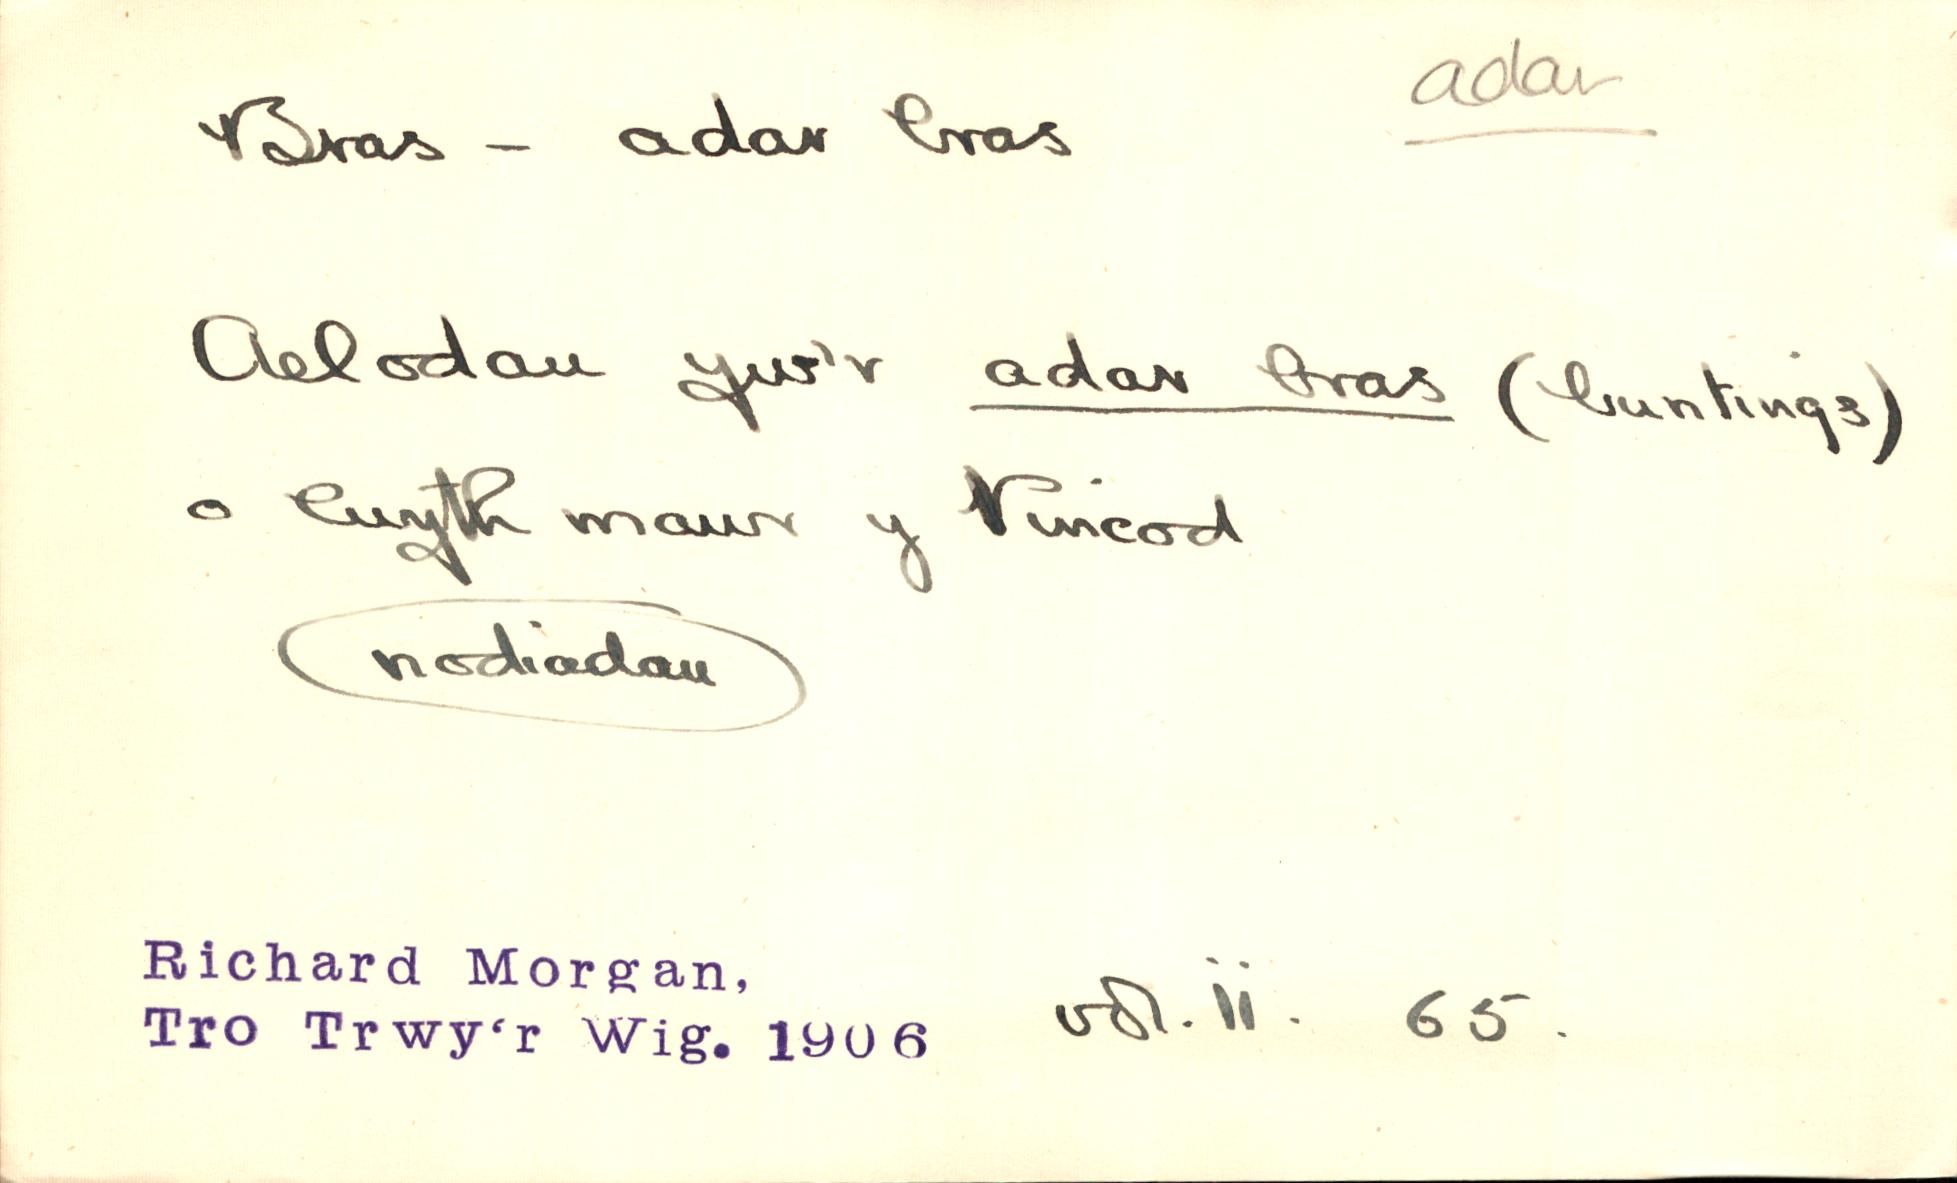 adar
Bras - adar bras
Aelodau yw'r adar bras (buntings)
o lwyth mawr y Pincod
nodiadau
Richard Morgan,
Tro Trwy'r Wig. 1906 vol. ii. 65.